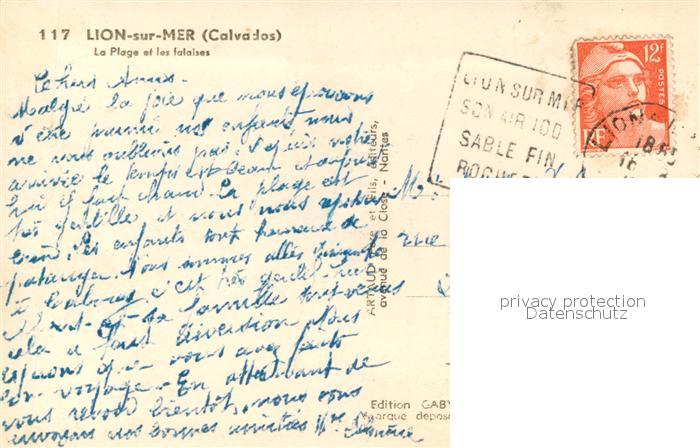 117 LION-sur-MER (Calvados)
La Plage et les falaises
Chers Amis -
Malgré la joie que nous éprouvons
d'être réunis nos enfants nous
ne vous oublions pas. Depuis notre
arrivée le temps est beau et aujour
hui il fait chaud. La plage est
très gentille et nous nous
bien, les enfants sont heureux de
patauger. Nous sommes allés
à Cabourg c'est très gentil
et sa famille sont venus
cela a fait diversion. Nous
espérons que vous avez fait
bon voyage - En attendant de
vous revoir bientôt, nous vous
envoyons nos bonnes amitiés
ARTAUD Père et Fils, Éditeurs,
avenue de la Close - Nantes
Edition GABY
Marque déposée
LION SUR MER
SON AIR IOD
SABLE FIN
ROCHE
12f
POSTES
RF
LION
18H
16
M
rue
privacy protection
Datenschutz